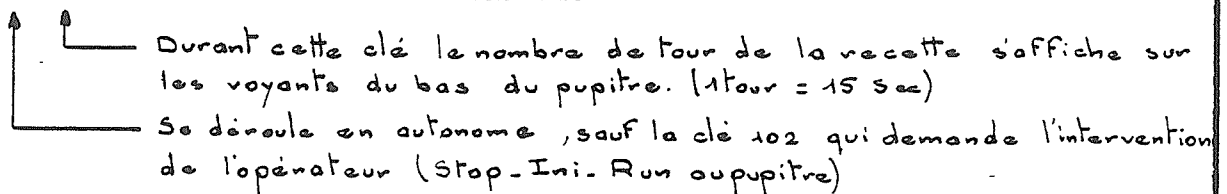 Durant cette clé le nombre de tour de la recette s'affiche sur
les voyants du bas du pupitre. (1 tour = 15 Sec)
Se déroule en autonome, sauf la clé 102 qui demande l'intervention
de l'opérateur (Stop_Ini_Run au pupitre)